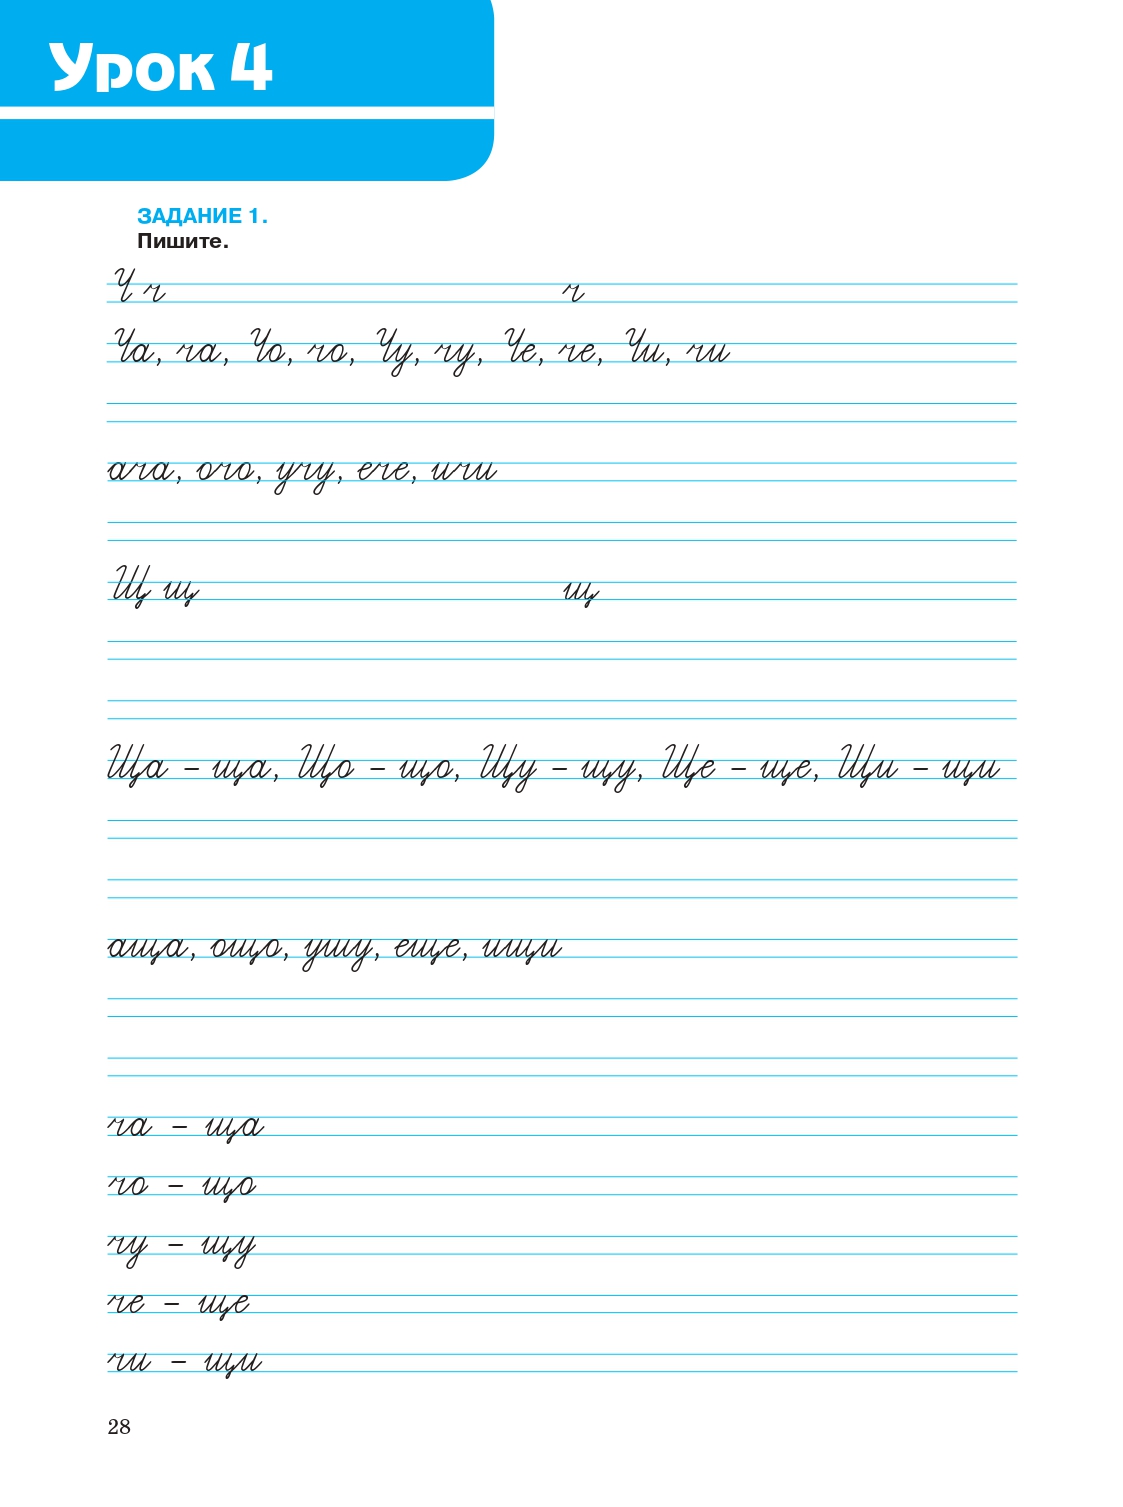 Урок 4
ЗАДАНИЕ 1.
Пишите.
Ч ч ч
Ча, ча, Чо, чо, Чу, чу, Че, че, Чи, чи
ача, очо, учу, ече, ичи
Щ щ щ
Ща – ща, Що – що, Щу – щу, Ще – ще, Щи – щи
аща, ощо, ушу, еще, ищи
ча – ща
чо – що
чу – щу
че – ще
чи – щи
28